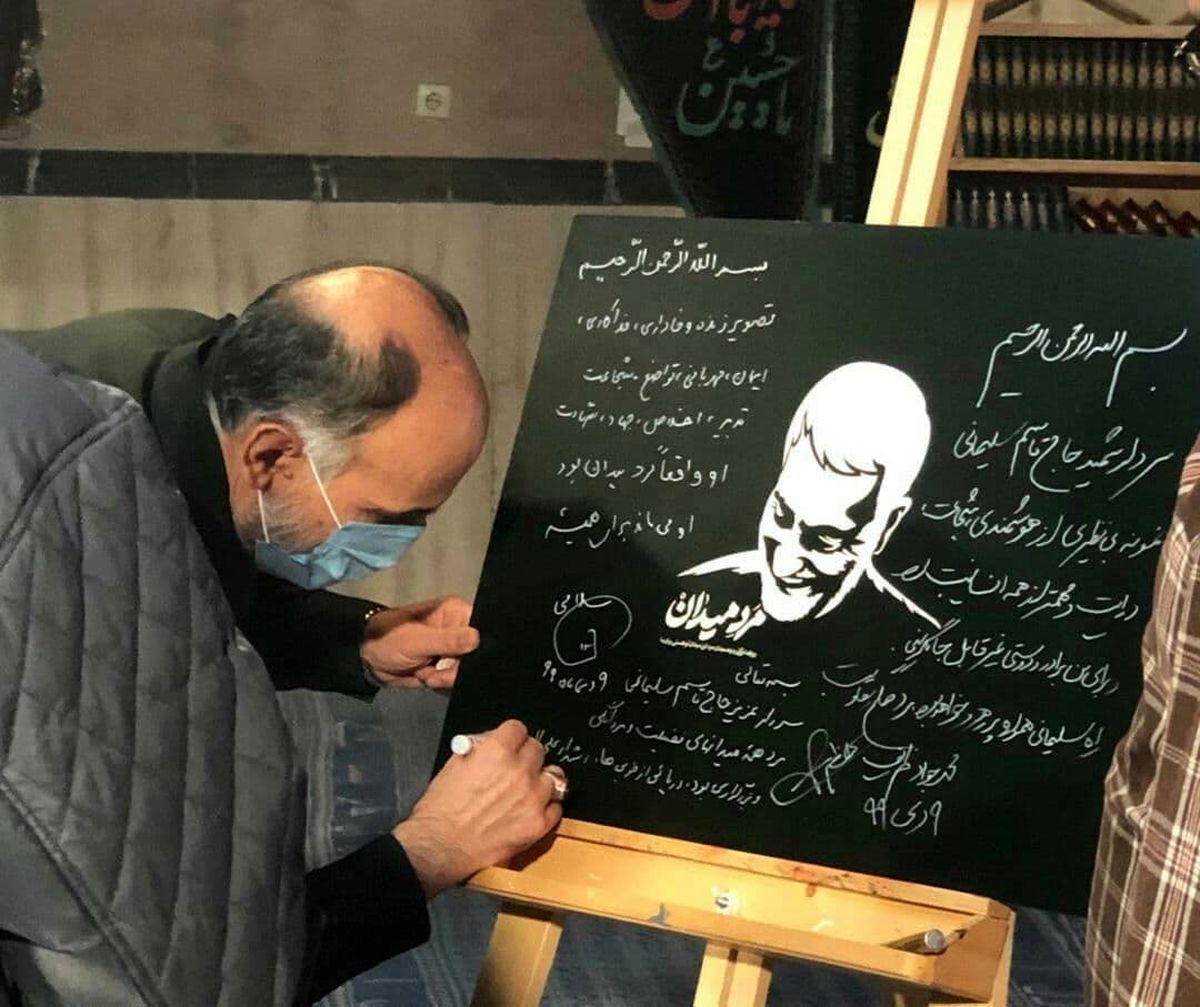 یا حسین
بسم الله الرحمن الرحیم
سردار شهید حاج قاسم سلیمانی
نمونه بی نظیری از هوشمندی، شجاعت،
درایت و مهمتر از همه انسانیت
برای من برادر و دوستی غیر قابل جایگزینی.
راه سلیمانی همواره پر رهرو خواهد بود
محمد جواد ظریف
۹ دی ۹۹
بسم الله الرحمن الرحیم
تصویر زنده وفاداری، فداکاری،
ایمان، مهربانی، تواضع، شجاعت
تدبیر، اخلاص، جهاد، شهادت
او واقعاً مرد میدان بود
او می ماند برای همیشه
سلامی
مرد میدان
بسمه تعالی
سردار عزیز حاج قاسم سلیمانی
مرد همه میدانهای فضیلت و مردانگی
و بود. دریائی از خوبی ها.